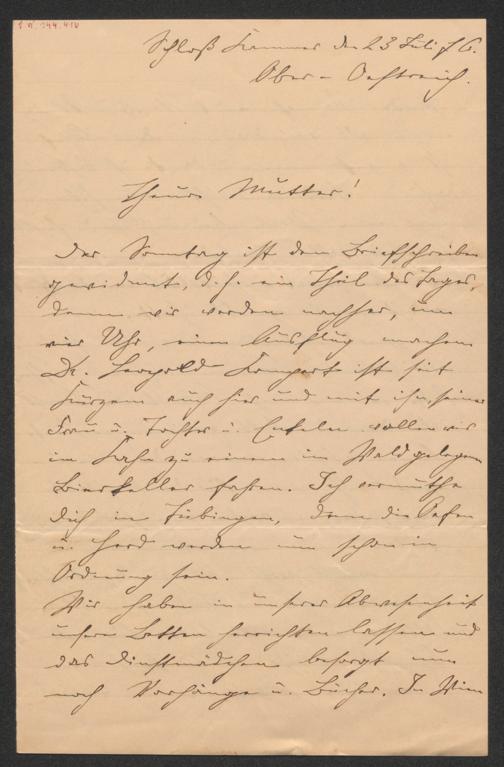 I.N. 144.416
Schloß Kammer den 23 Juli 76.
Ober-Oestreich.
Theure Mutter!
Der Sonntag ist dem Briefschreiben
gewidmet, d.h. ein Theil des Tages,
denn wir werden nachher, um
vier Uhr, einen Ausflug machen
Dr. Leopold Kompert ist seit
Kurzem auch hier und mit ihm, seiner
Frau u. Tochter u. Enkeln wollen wir
im Kahn zu einem im Wald gelegenen
Bierkeller fahren. Ich vermuthe
Dich in Tübingen, denn die Oefen
u. Herd werden nun schon in
Ordnung sein.
Wir haben in unserer Abwesenheit
unsere Betten herrichten lassen und
das Dienstmädchen besorgt nun
noch Vorhänge u. Bücher. In Wien